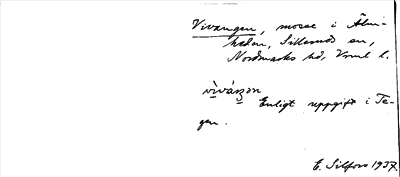 Vivangen, mosse i Älm-
hedan, Sillerud sn,
Nordmarks hd, Vrml l.
viváŋon
Enligt uppgift i Te-
gen.
E. Silfors 1937.